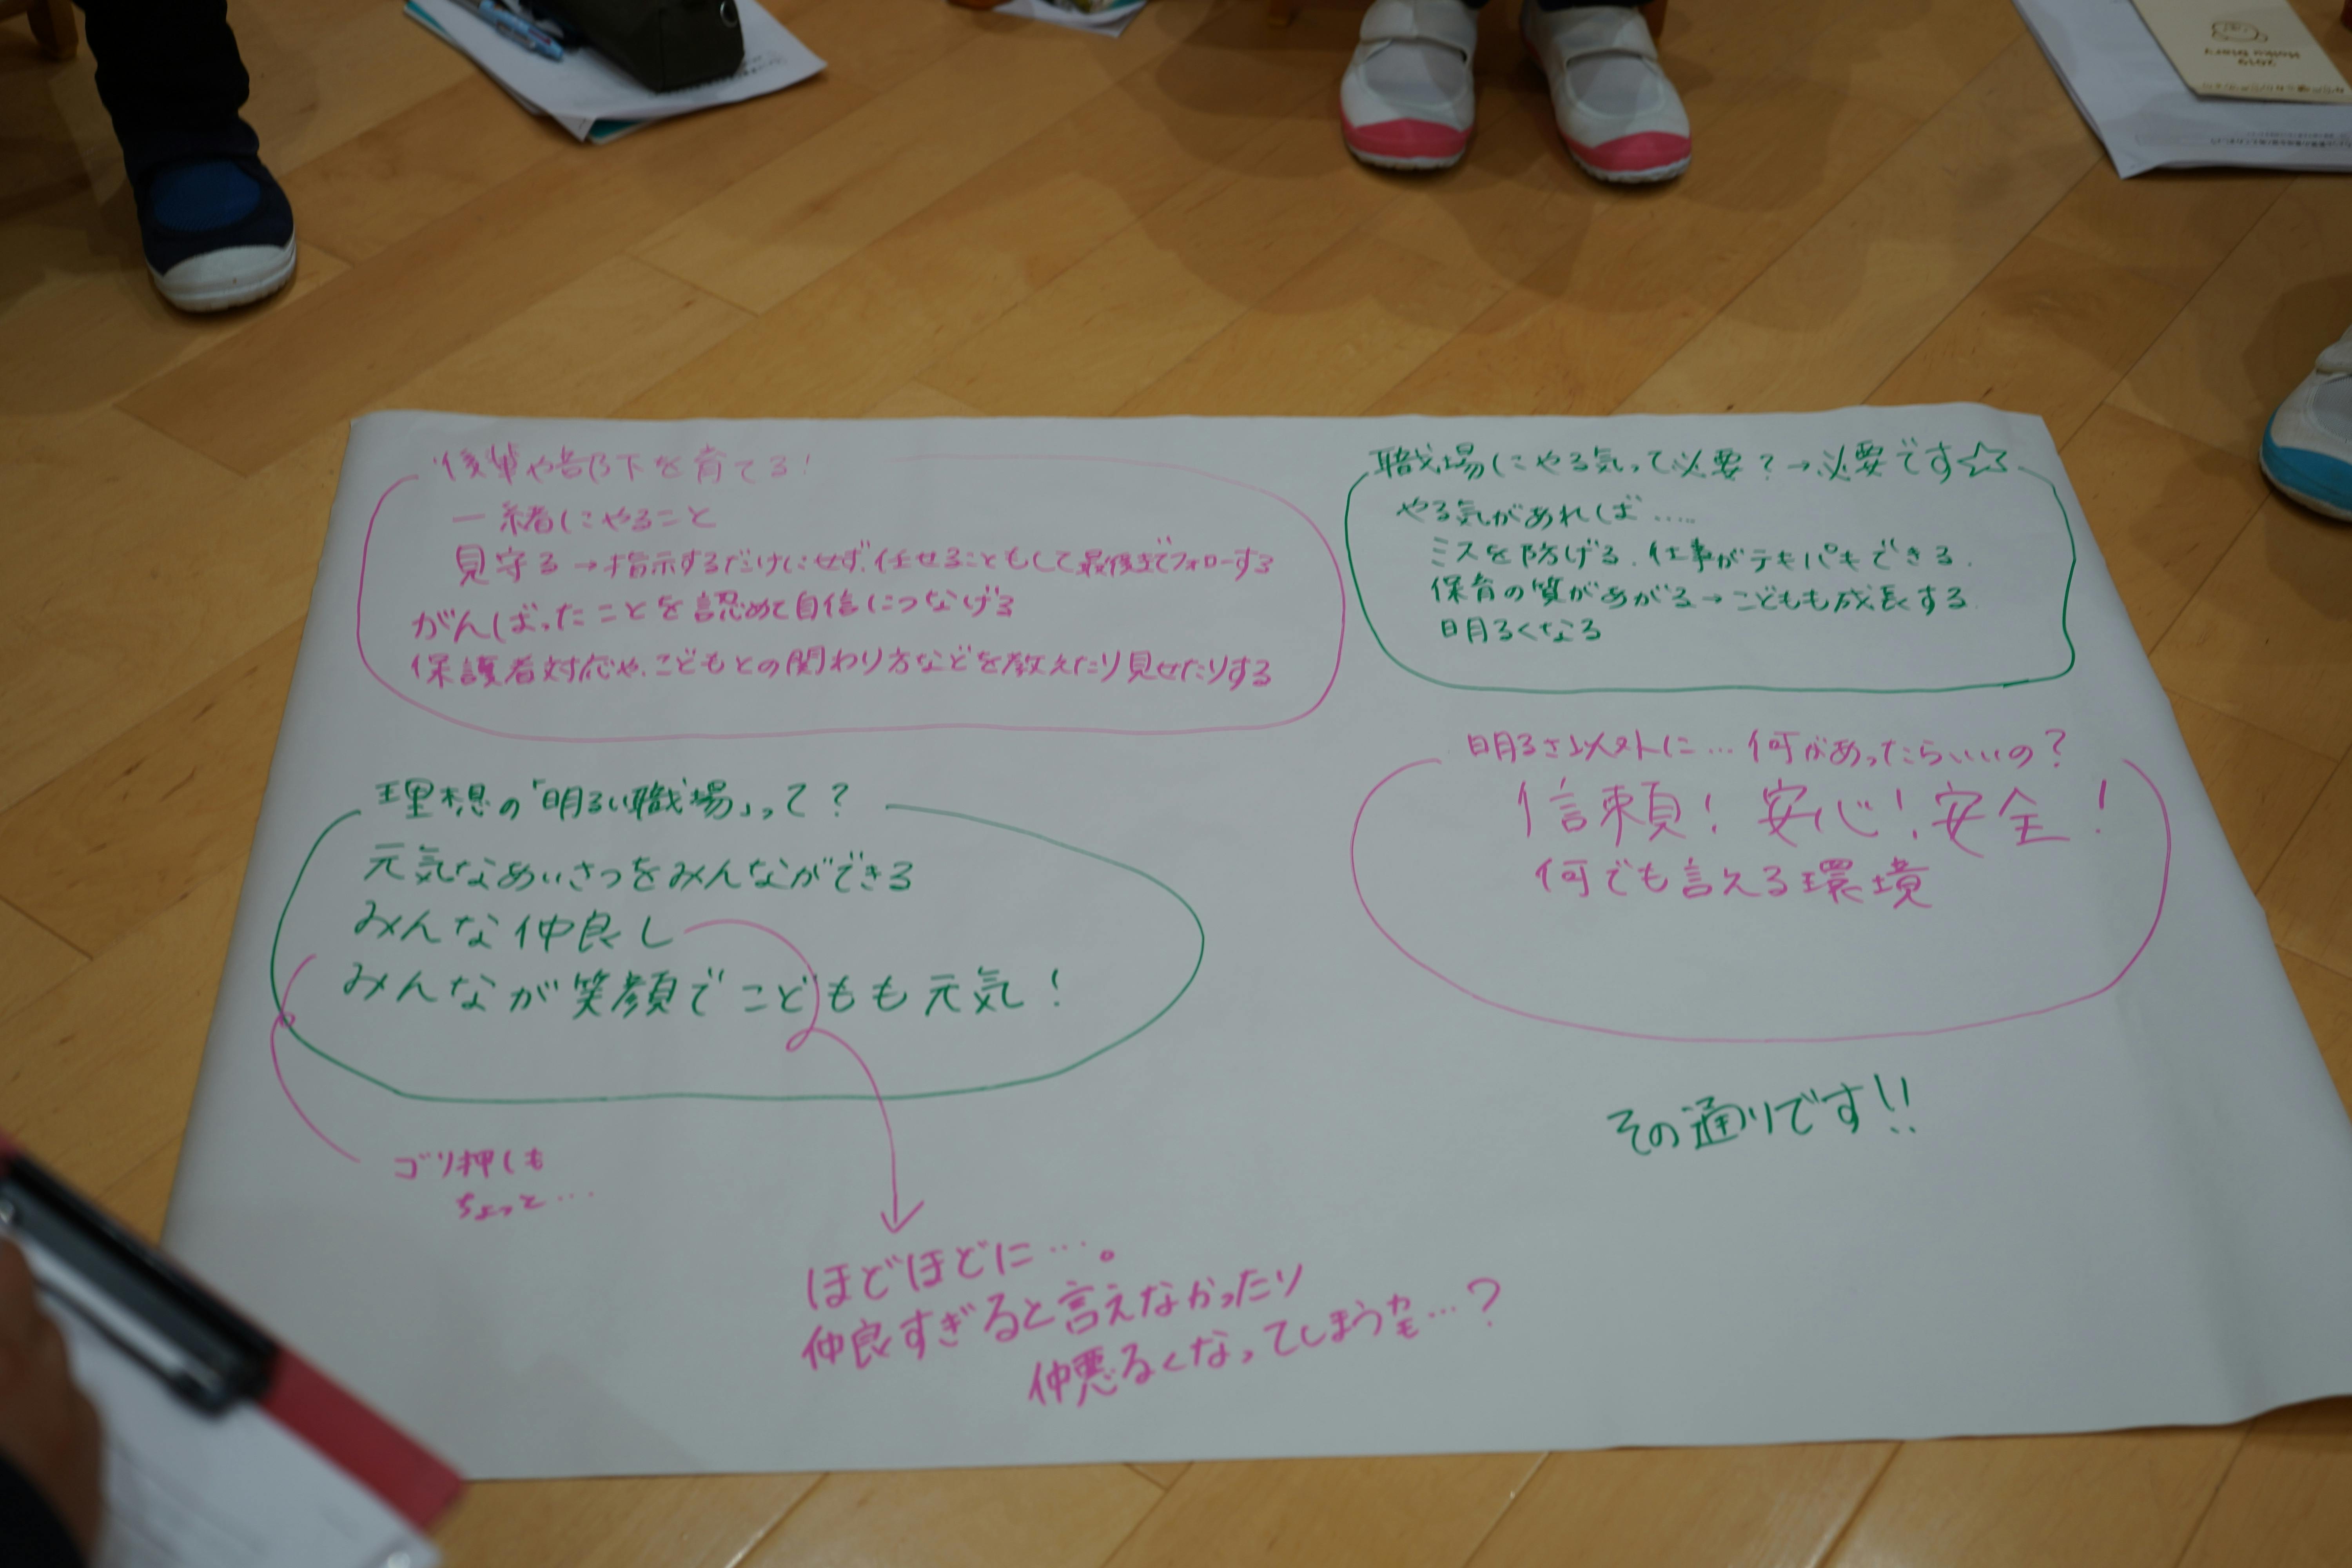 後輩や部下を育てる!
一緒にやること
見守る→指示するだけにせず、任せることもして最後までフォローする
がんばったことを認めて自信につなげる
保護者対応や、こどもとの関わり方などを教えたり見せたりする
職場にやる気って必要?→必要です☆
やる気があれば……
ミスを防げる、仕事がテキパキできる、
保育の質があがる→こどもも成長する
明るくなる
理想の「明るい職場」って?
元気なあいさつをみんなができる
みんな仲良し
みんなが笑顔でこどもも元気!
明るさ以外に…何があったらいいの?
信頼!安心!安全!
何でも言える環境
その通りです!!
ゴリ押しも
ちょっと…
ほどほどに…。
仲良すぎると言えなかったり
仲悪るくなってしまうカモ…?